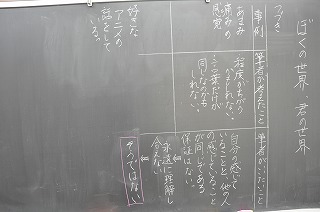 ぼくの世界、君の世界
つづき
事例
筆者が考えたこと
筆者がいいたいこと
あまみ
痛みの
感覚
程度がちがう
かもしれない。
言葉だけが
同じなのかも
しれない。
自分の感じて
いることと他の人
の感じていること
が同じである
保証はない。
永遠に理解し
合えない
そうではない
好きな
アニメの
話をして
いる。